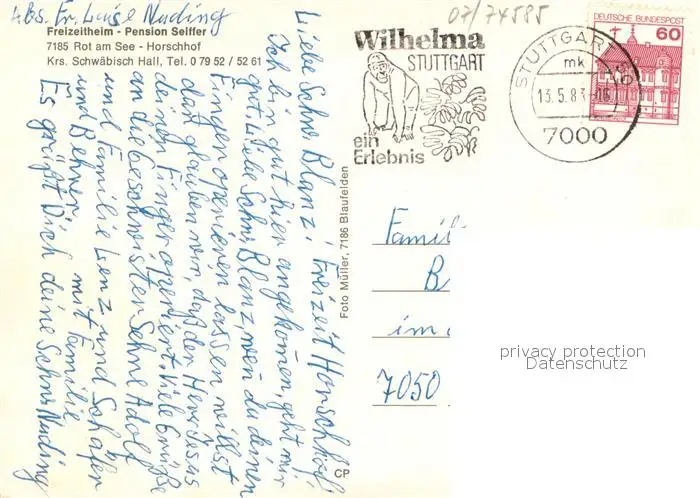 Abs. Fr. Luise Nuding
Freizeitheim - Pension Seiffer
7185 Rot am See - Horschhof
Krs. Schwäbisch Hall, Tel. 0 79 52 / 52 61
Freizeit Horschhof
Liebe Schw. Blanz!
Ich bin gut hier angekomen, geht mir
gut. Liebe Schw. Blanz, wen du deinen
Fingen operieren lassen willst
dan glauben wir, daß der Herr Jesus
deinen Finger operiert. Viele Grüße
an die Geschwister Sehne Adolf
und Familie Lenz und Schäfer
und Behner mit Familie
Es grüßt Dich deine Schw. Nuding
Foto Müller, 7186 Blaufelden
CP
07/74585
Wilhelma
STUTTGART
ein
Erlebnis
STUTTGART 50
mk
13.5.83
7000
DEUTSCHE BUNDESPOST
60
Famil
B
im
7050
privacy protection
Datenschutz